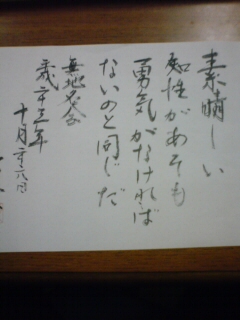 素晴しい
知性があっても
勇気がなければ
ないのと同じだ
無地会
平成二十三年
十月二十六日